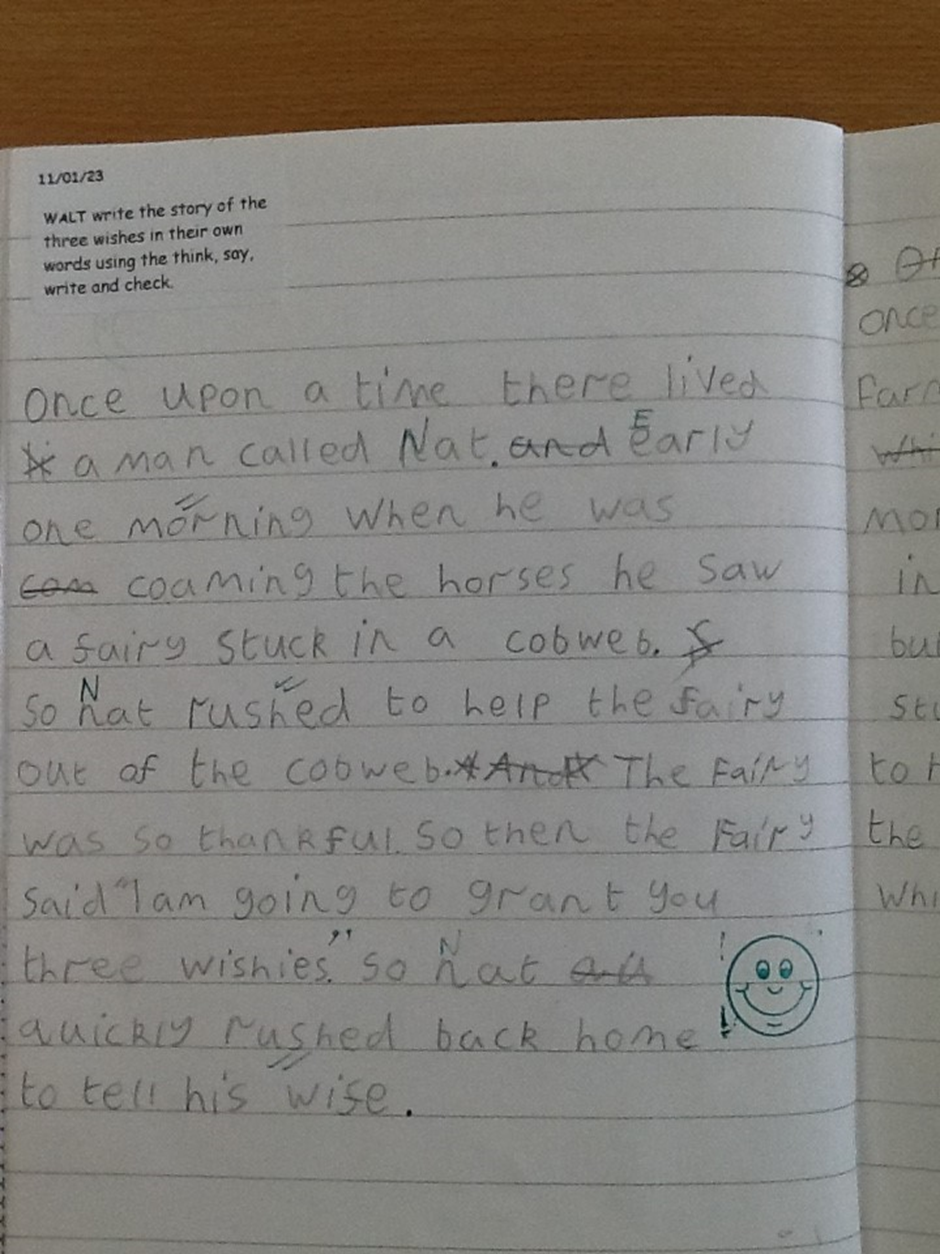 11/01/23
WALT write the story of the
three wishes in their own
words using the think, say,
write and check.
Once upon a time there lived
a man called Nat. and Early
one morning when he was
com coaming the horses he saw
a fairy stuck in a cobweb.
So Nat rushed to help the fairy
out of the cobweb. And The Fairy
was so thankful. So then the Fairy
said "I am going to grant you
three wishies." so Nat
quickly rushed back home
to tell his wife.
once
Farm
mor
in
bu
stu
to h
the
Whi